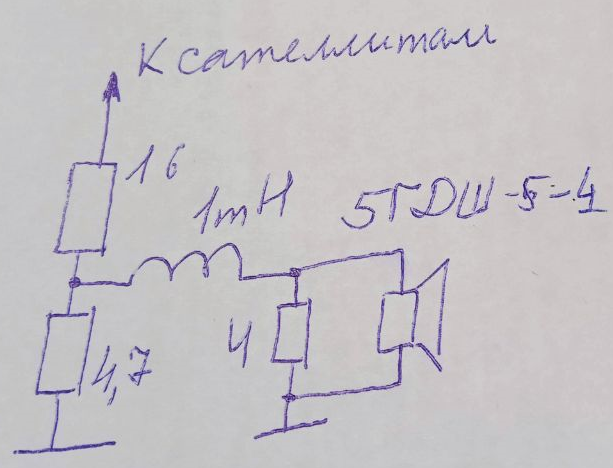 К сателлитам
16
1mH
5ГДШ-5-4
4
4,7